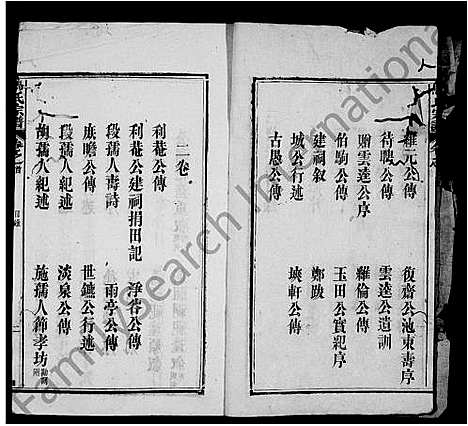 維元公傳
復齋公池東壽序
待聘公傳
雲逵公遺訓
贈雲逵公序
維倫公傳
伯駒公傳
玉田公實紀序
建祠叙
鄭跋
城公行述
埉軒公傳
古愚公傳
二卷
利菴公傳
利菴公建祠捐田記
浮谷公傳
段孺人壽詩
雨亭公傳
庶瞻公傳
世鑣公行述
段孺人紀述
淡泉公傳
孺人紀述
施孺人節孝坊
目錄
FamilySearch International